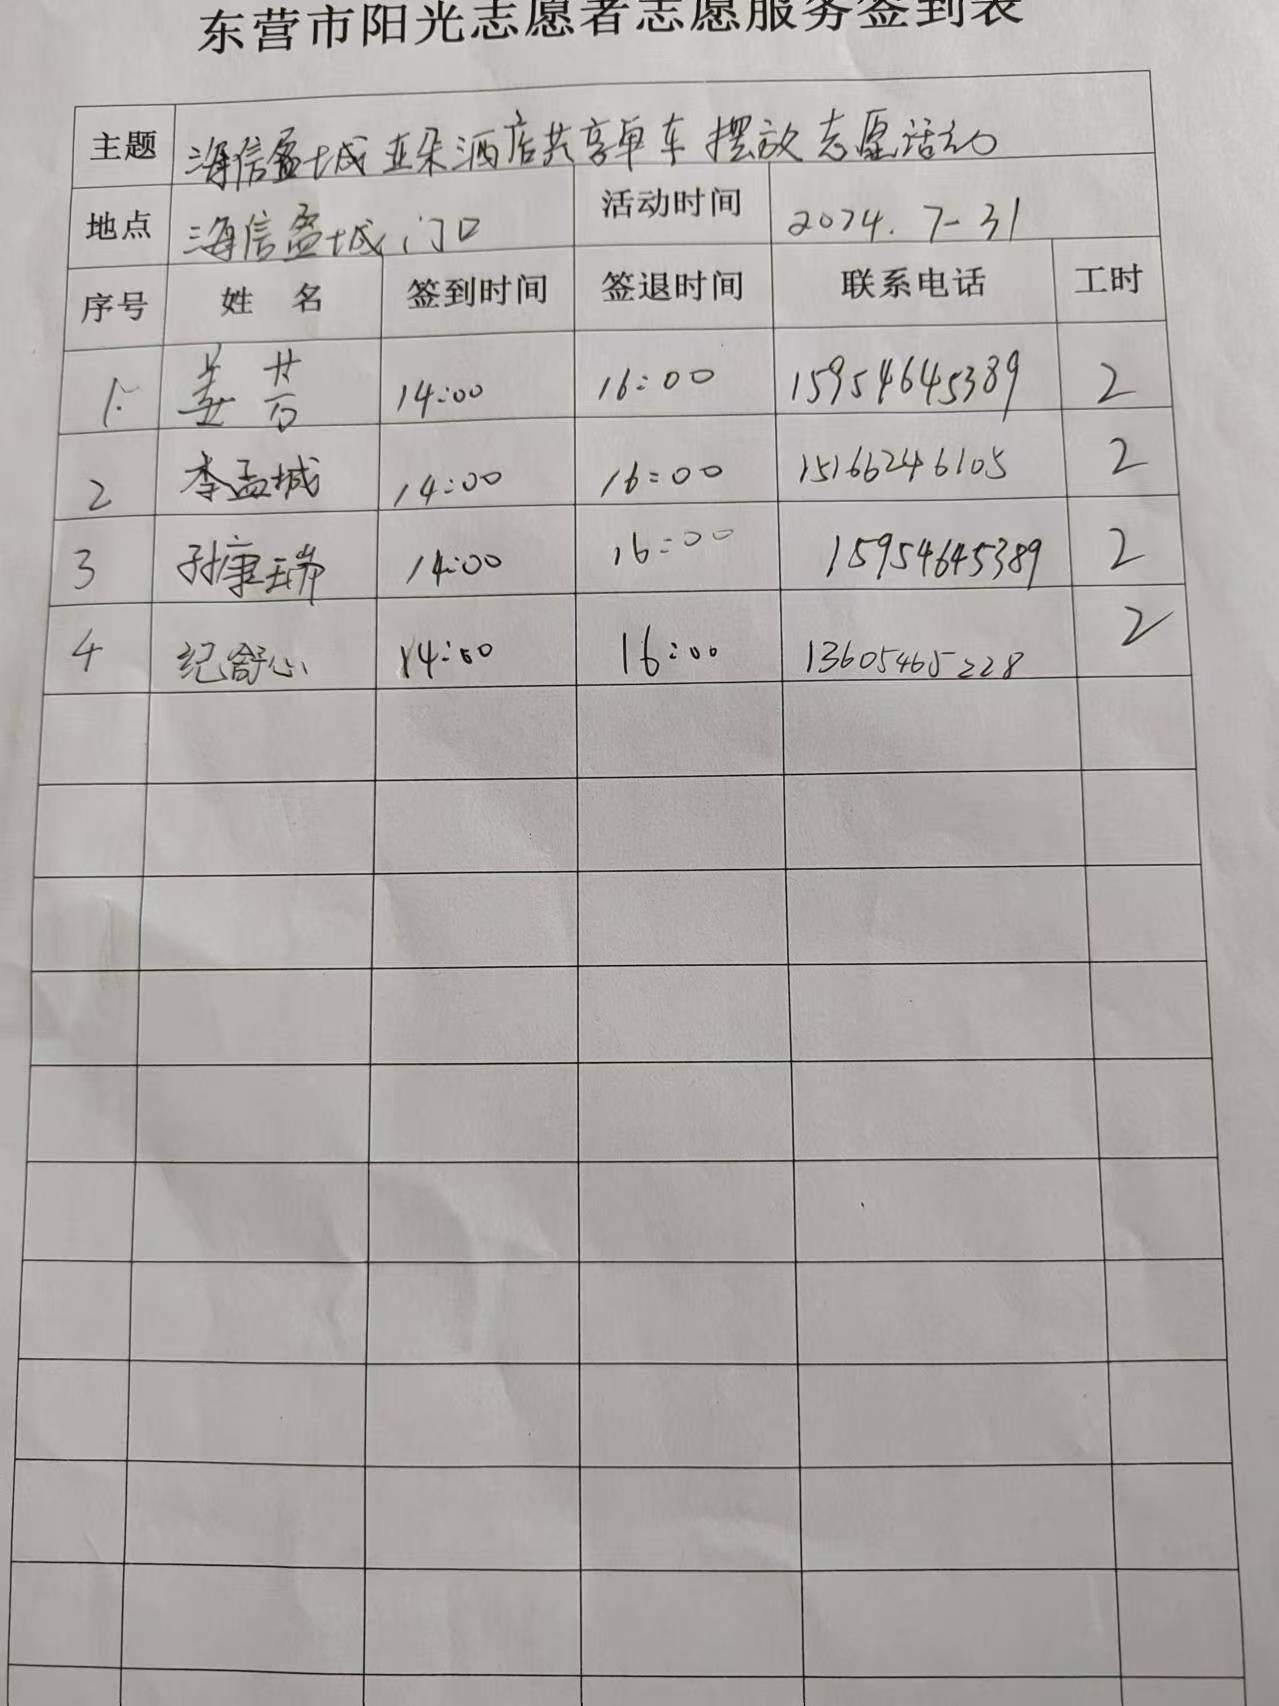 东营市阳光志愿者志愿服务签到表
主题 海信盈城亚朵酒店共享单车摆放志愿活动
地点 海信盈城门口 活动时间 2024.7-31
序号 姓 名 签到时间 签退时间 联系电话 工时
1. 姜 14:00 16:00 15954645389 2
2 李孟城 14:00 16:00 15166246105 2
3 孙康瑞 14:00 16:00 15954645389 2
4 纪舒心 14:00 16:00 13605465228 2